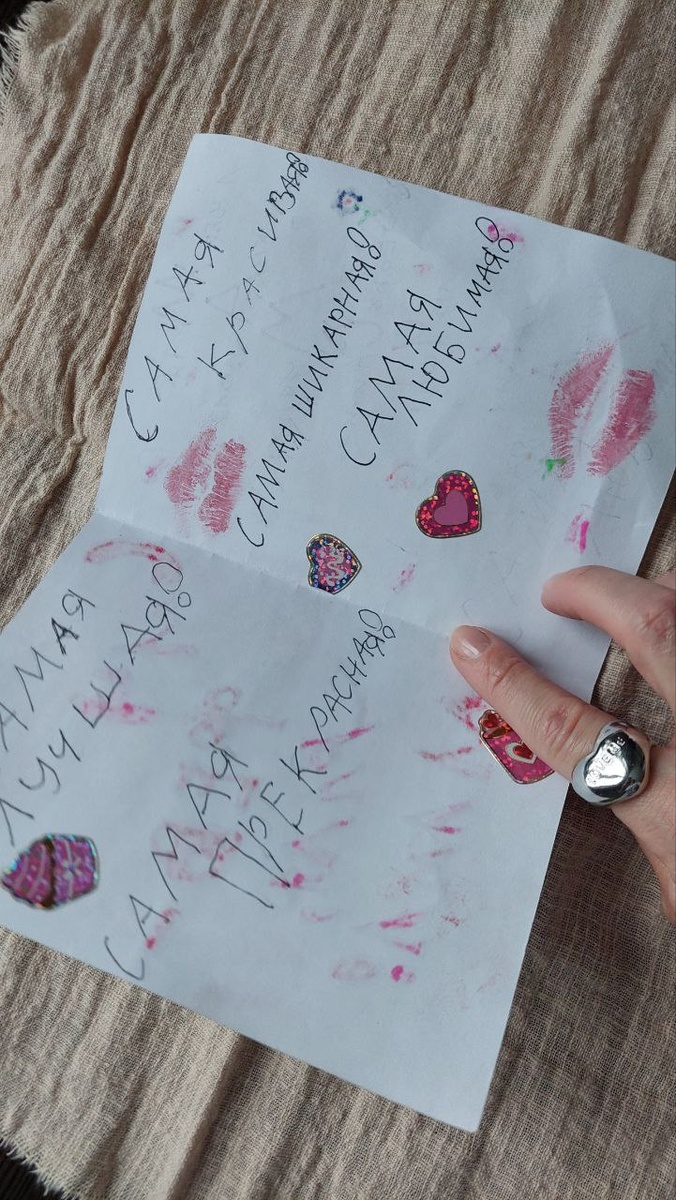 САМАЯ
КРАСИВАЯ!
САМАЯ ШИКАРНАЯ!
САМАЯ
ЛЮБИМАЯ!
САМАЯ
ЛУЧШАЯ!
САМАЯ
ПРЕКРАСНАЯ!